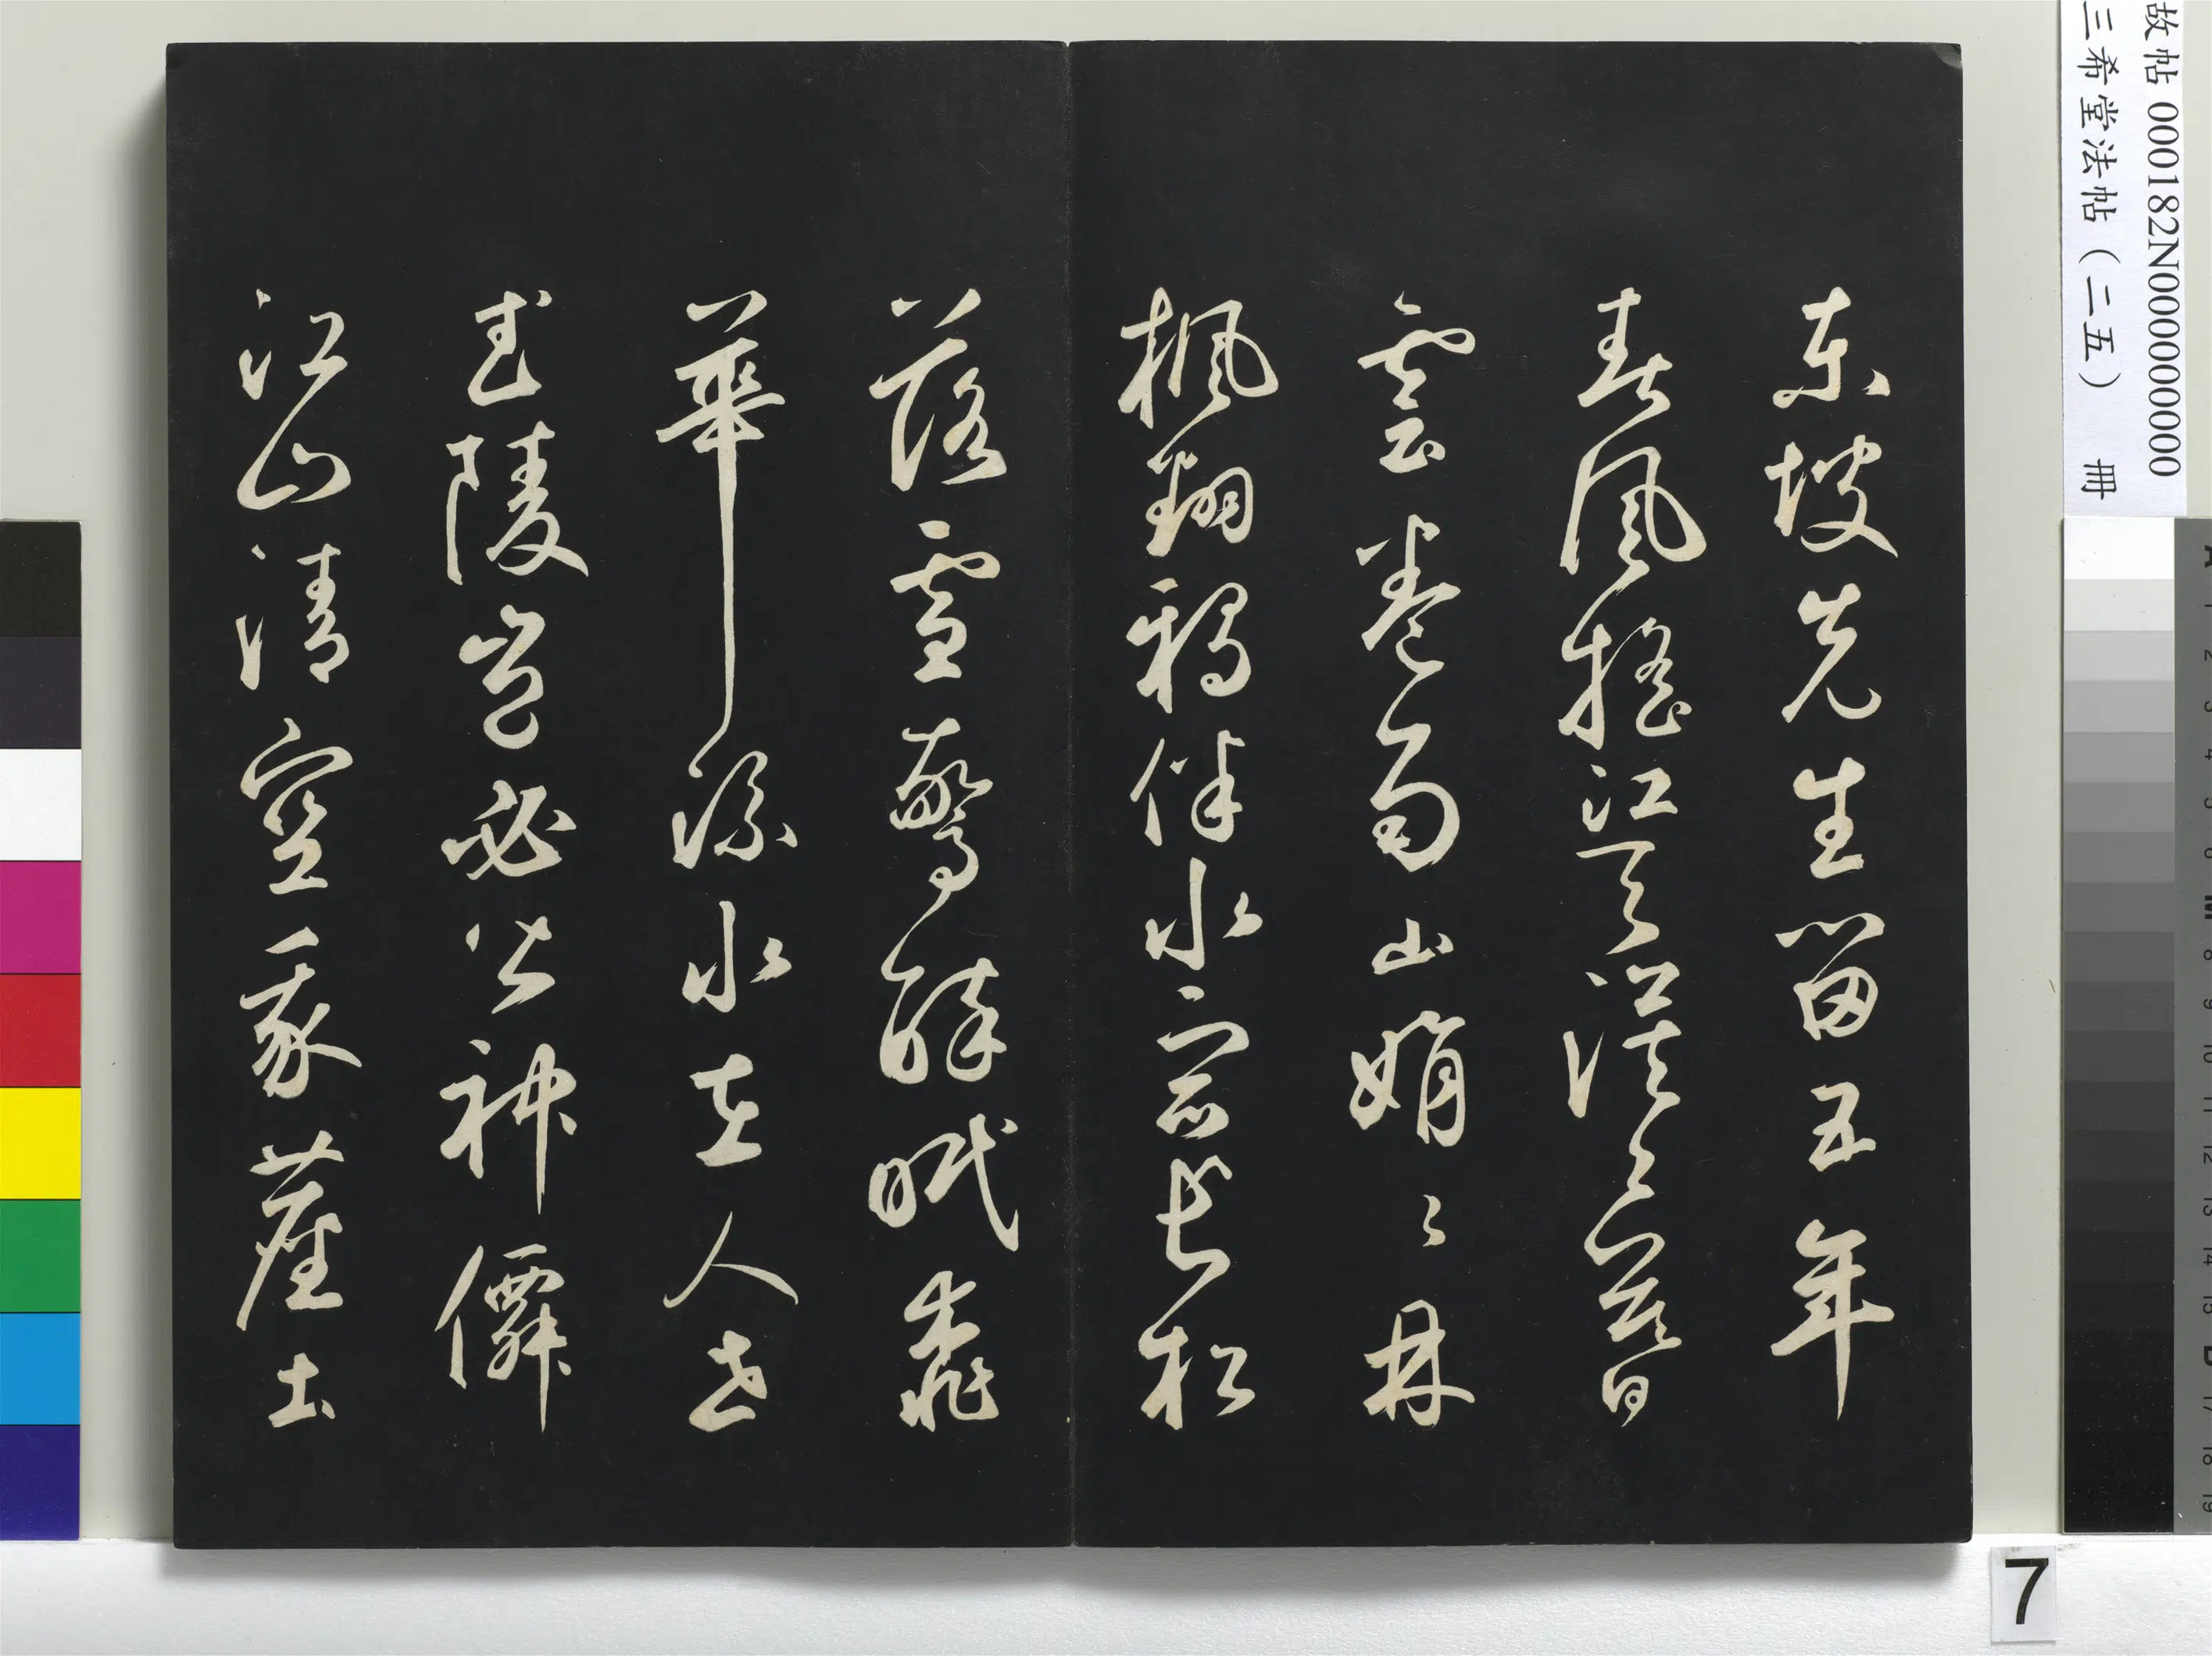 東坡先生留五年
春風搖江天漠〻暮
雲卷雨山娟〻丹
楓翻鴉伴水宿長松
落雪驚醉眠桃
華流水在人世
武陵豈必皆神僊
江山清空我塵土
故帖 000182N000000000
三希堂法帖(二五) 冊
7